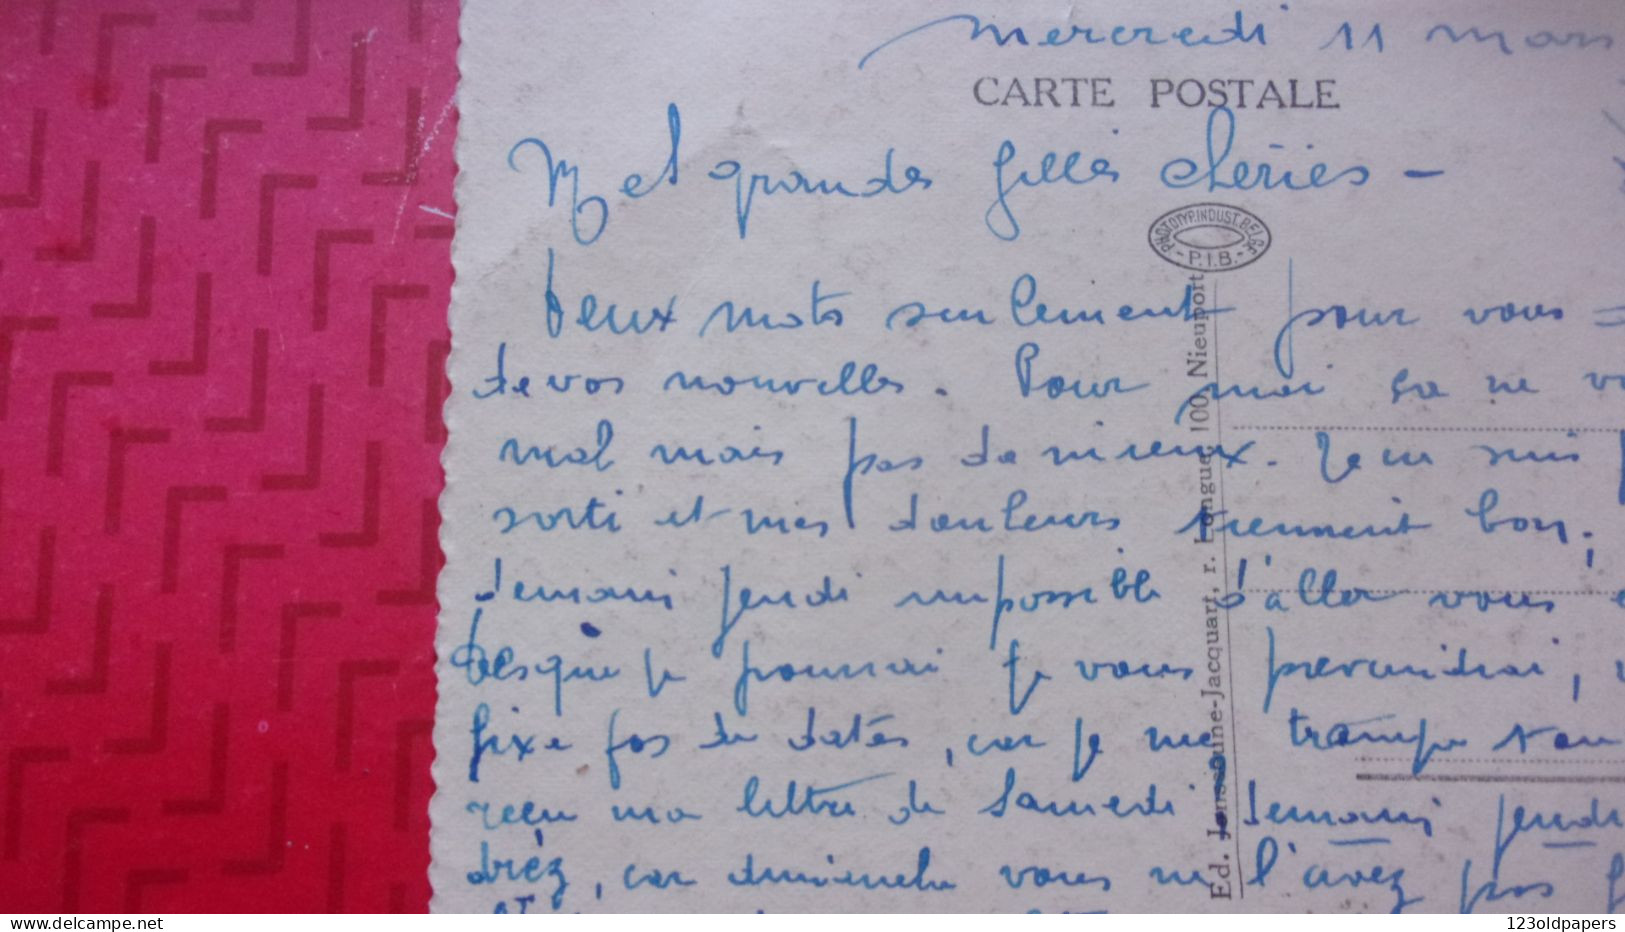 mercredi 11 mars
CARTE POSTALE
Mes grandes filles chéries -
PHOTOTYP. INDUST. BELGE
- P.I.B. -
Deux mots seulement pour vous
de vos nouvelles. Pour moi ça ne v
mal mais pas de mieux. Je ne suis p
sorti et mes douleurs tiennent bon.
demain jeudi impossible d'aller vous
Dès que je pourrai je vous previendrai,
fixe pas de dates, car je me trompe
reçu ma lettre de Samedi demain jeudi
drez, car dimanche vous ne l'avez pas
Ed. Jonssoune-Jacquart, r. Longue, 100, Nieuport
123oldpapers